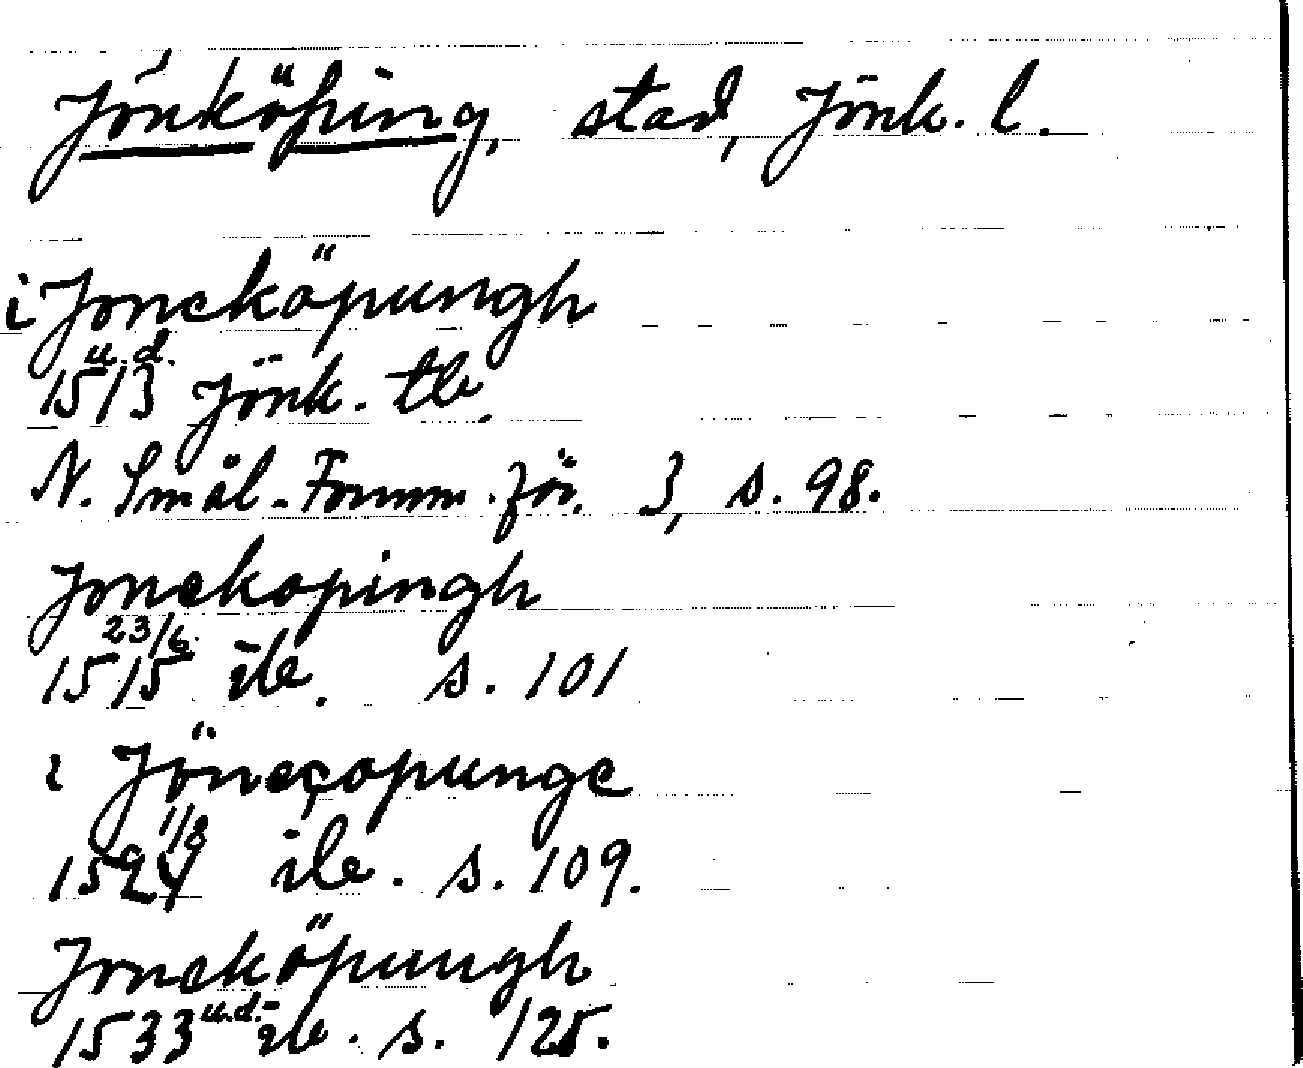 Jönköping, stad, Jönk. l.
i Joncköpungh
1513 u.d. Jönk. tb.
N. Smål. Fornm. för. 3, s. 98.
Jonckopingh
1515 23/6 ib. s. 101
i Jöneçopunge
1524 1/8 ib. s. 109.
Joncköpungh
1533 u.d. ib. s. 125.